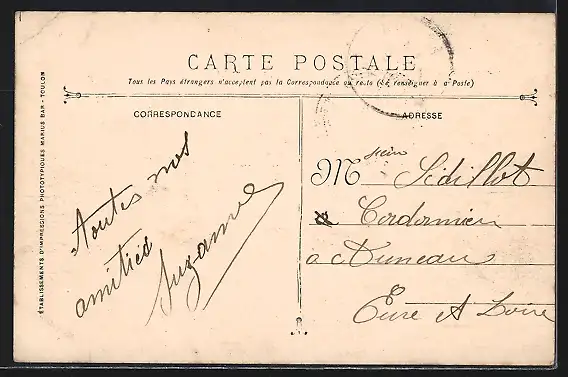 CARTE POSTALE
Tous les Pays étrangers n'acceptent pas la Correspondance au recto (Se renseigner à la Poste)
CORRESPONDANCE
ADRESSE
ÉTABLISSEMENTS D'IMPRESSIONS PHOTOTYPIQUES MARIUS BAR - TOULON
Toutes nos
amitiés
Suzanne
M Sidillot
Cordonnier
a Auneau
Eure et Loire